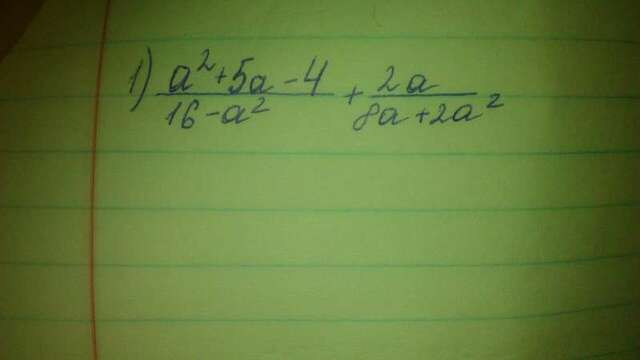 1) (a²+5a-4)/(16-a²) + 2a/(8a+2a²)